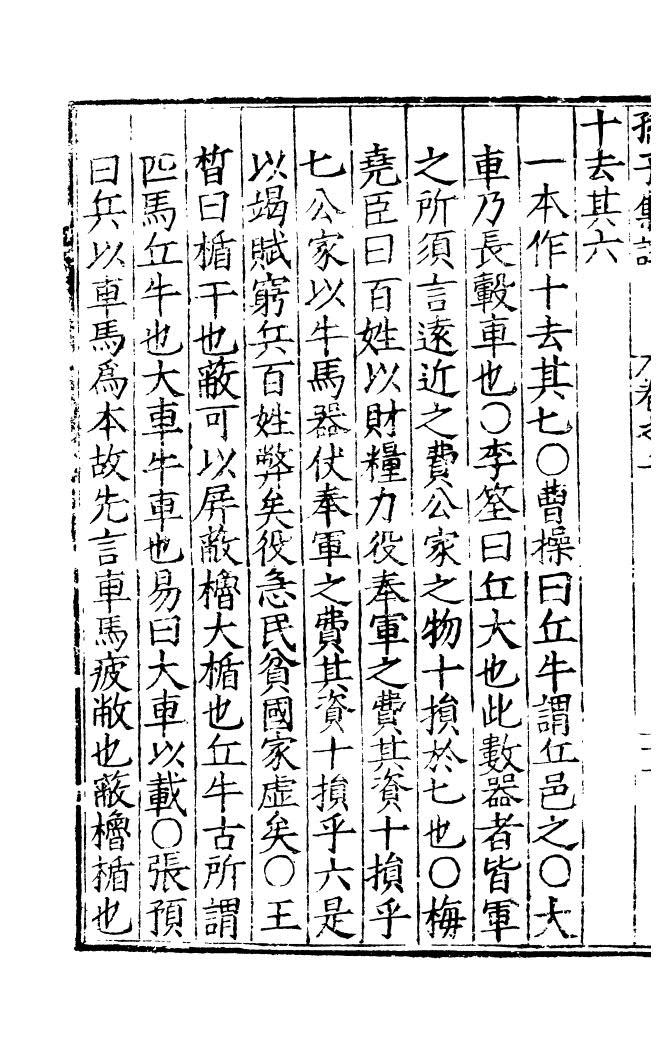 孫子集註 卷之
十去其六
一本作十去其七○曹操曰丘牛謂丘邑之○大
車乃長轂車也○李筌曰丘大也此數器者皆軍
之所須言遠近之費公家之物十損於七也○梅
堯臣曰百姓以財糧力役奉軍之費其資十損乎
七公家以牛馬器仗奉軍之費其資十損乎六是
以竭賦窮兵百姓弊矣役急民貧國家虛矣○王
晳曰楯干也蔽可以屏蔽櫓大楯也丘牛古所謂
匹馬丘牛也大車牛車也易曰大車以載○張預
曰兵以車馬爲本故先言車馬疲敝也蔽櫓楯也